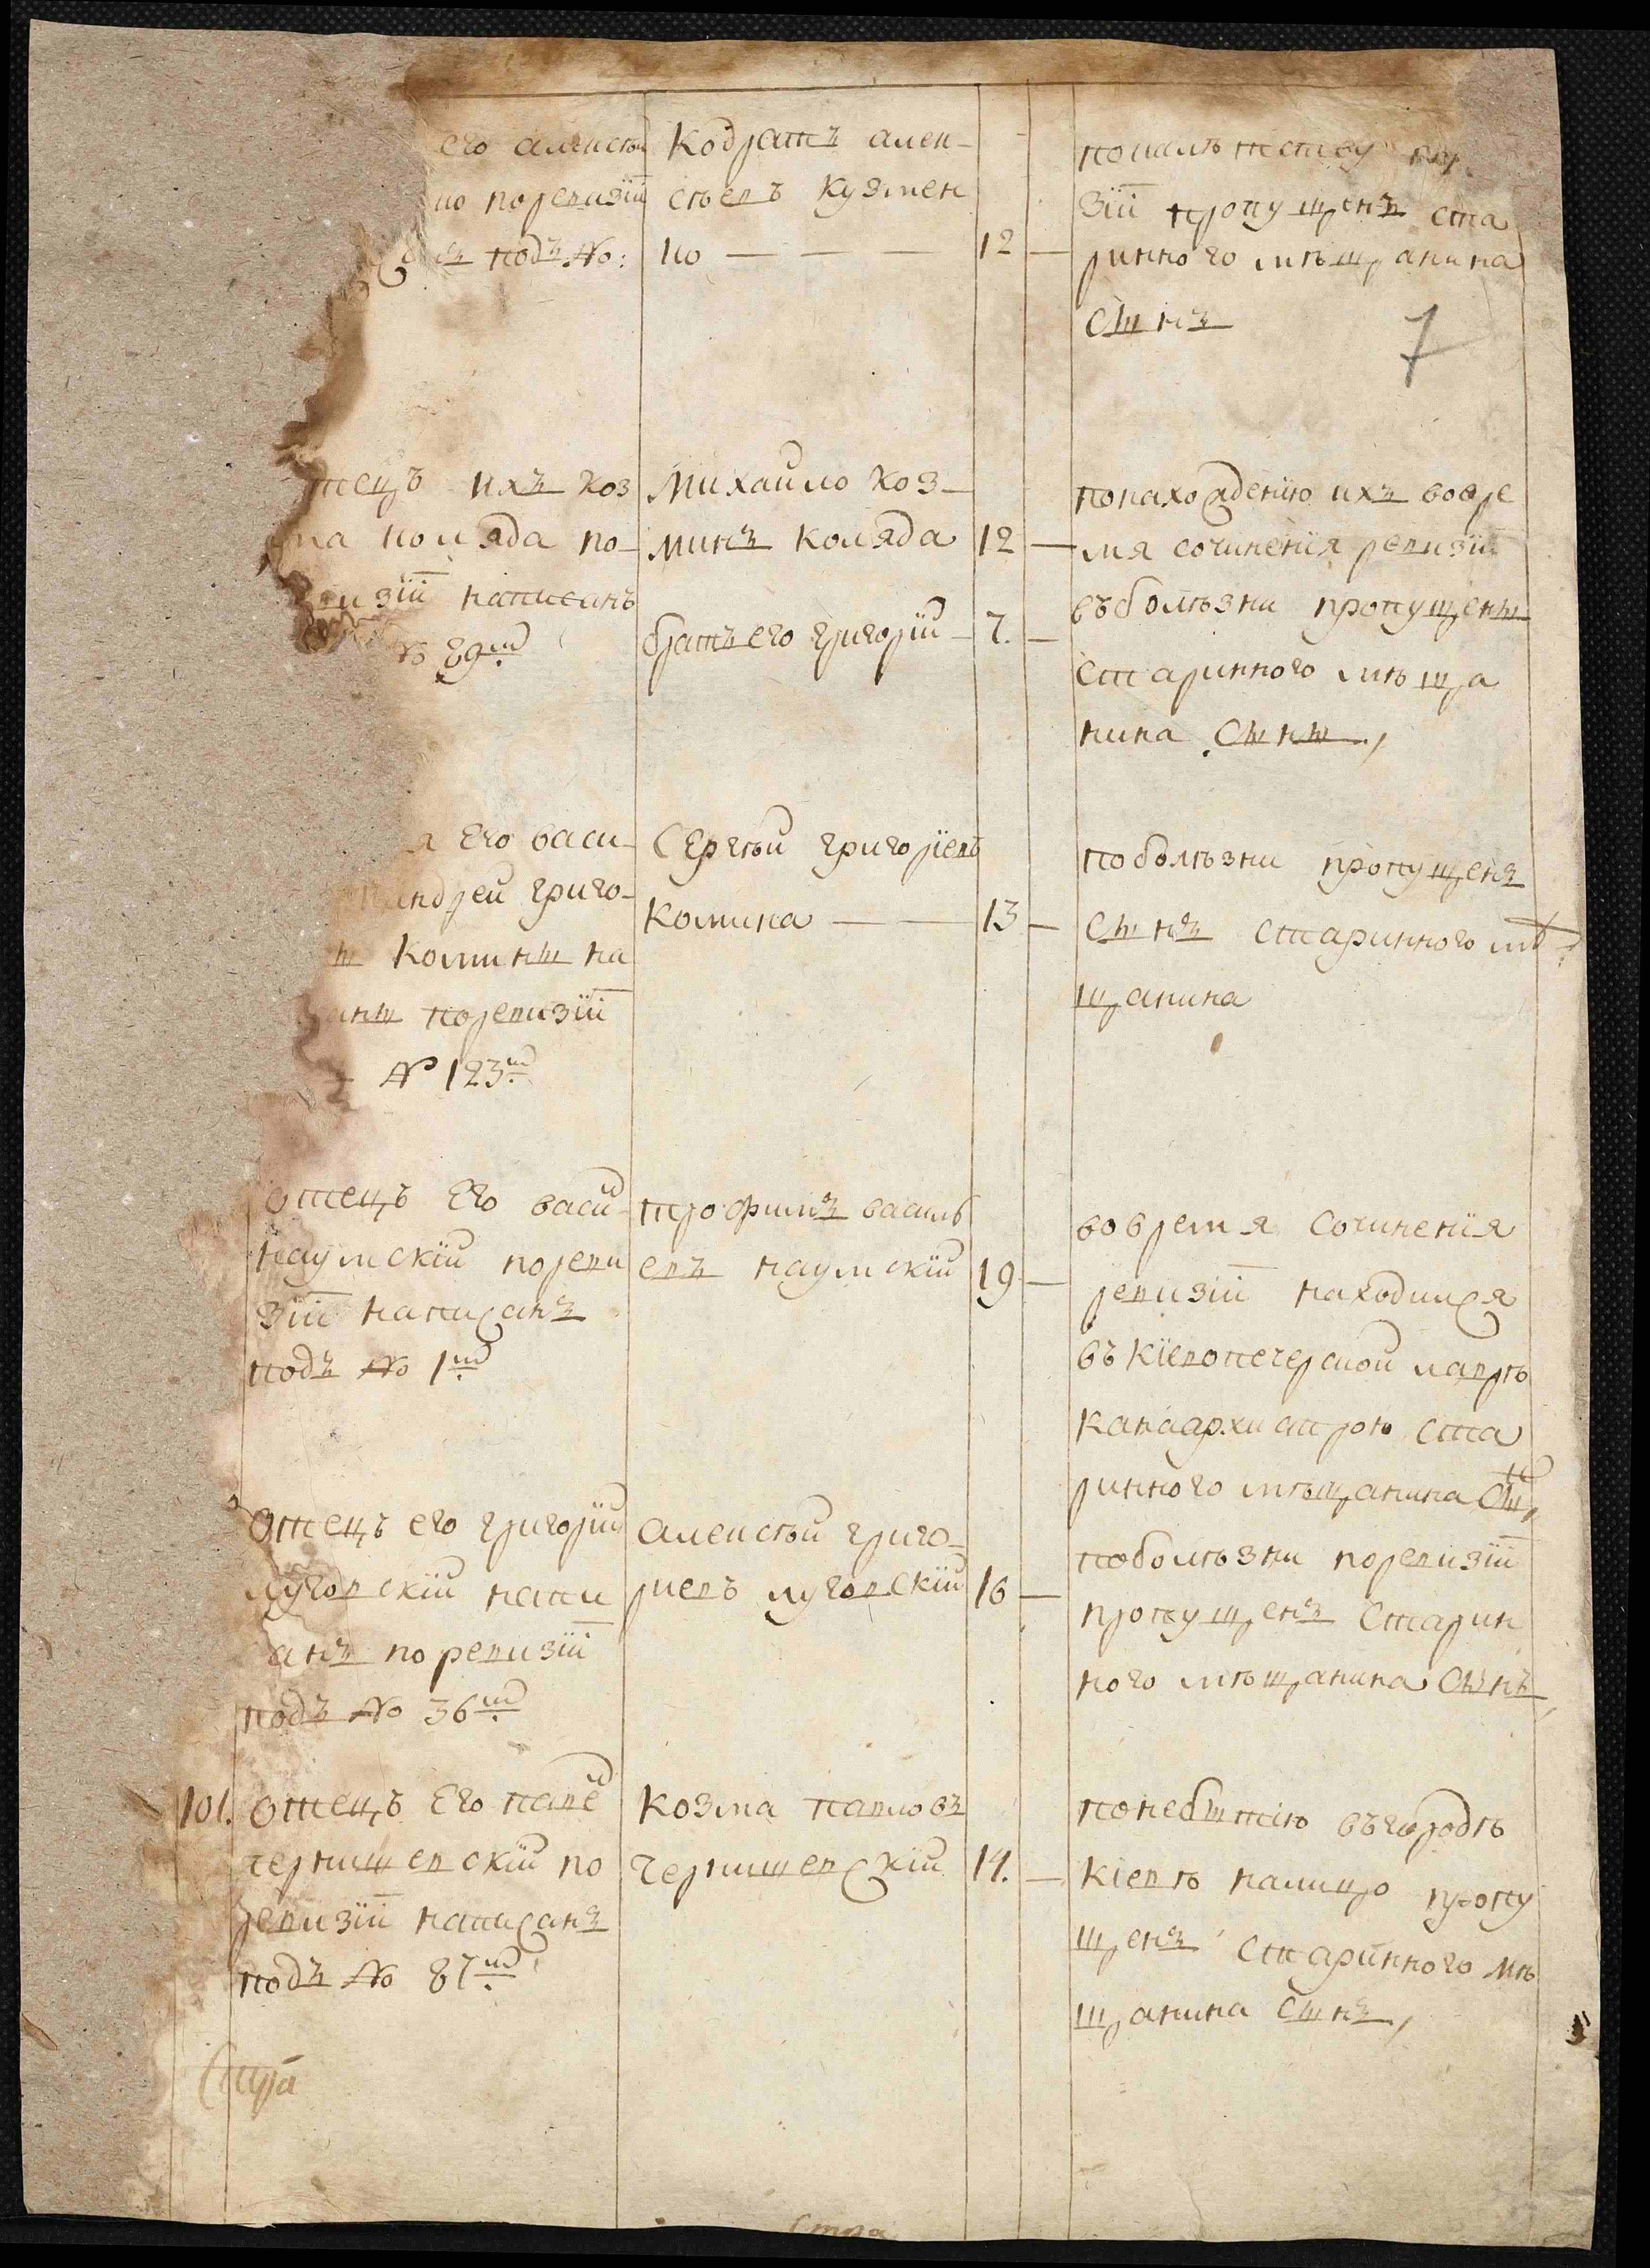 его алексѣй
ко поревизіи
подъ №:
Кодратъ алек-
сѣевъ кузмен
ко — — — 12 —
помалѣтству
зіи пропущенъ ста
ринного мѣщанина
сынъ
7
тецъ ихъ коз
ма коляда по-
визіи написанъ
№ 89м
Михайло коз-
минъ коляда 12 —
братъ его григорій — 7. —
понахожденію ихъ вовре
мя сочиненія ревизіи
въболѣзни пропущены
старинного мѣща
нина сыны,
я его васи-
андрей григо-
комины на
саны поревизіи
№ 123м
Сергѣй григоріевъ
комина — — 13 —
поболѣзни пропущенъ
сынъ старинного мѣ
щанина
отецъ Его васи
наумскій пореви
зіи написанъ
подъ № 1м
трофимъ василь
евъ наумскій 19 —
вовремя сочиненія
ревизіи находился
въкіевопечерской лаврѣ
канаархистрою ста
ринного мѣщанина сын,
отецъ его григорій
луговскій напи
санъ поревизіи
подъ № 36м
алексѣй григо-
риевъ луговскій 16 —
поболѣзни поревизіи
пропущенъ старин
ного мѣщанина сынъ,
101. отецъ Его паве
чернишевскій по
ревизіи написанъ
подъ № 87м
козма павловъ
чернишевскій 14. —
понебытію въгородѣ
кіевѣ налицо пропу
щенъ старинного мѣ
щанина сынъ,
Стра